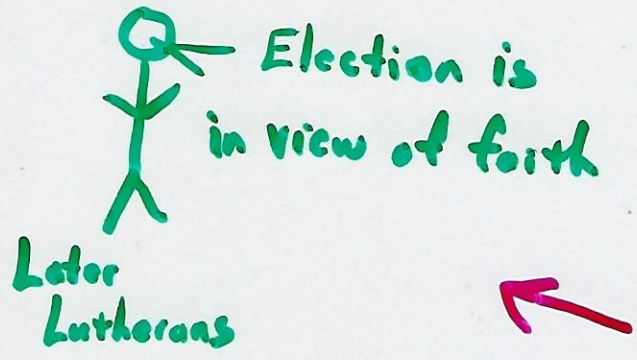 Election is
in view of faith
Later
Lutherans